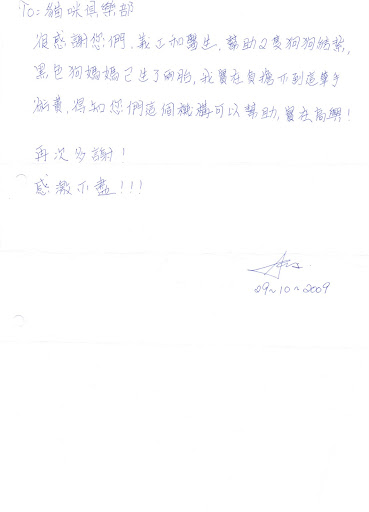 To: 貓咪俱樂部
很感謝您們, 義工和醫生, 幫助2隻狗狗結紮,
黑色狗媽媽已生了兩胎, 我實在負擔不到這單手
術費, 得知您們這個機構可以幫助, 實在高興!
再次多謝!
感激不盡!!!
29-10-2009